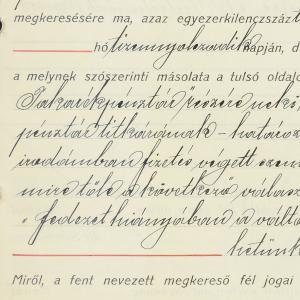 megkeresésére ma, azaz egyezerkilenczszázt
hó tizennyolczadik napján, d
a melynek szószerinti másolata a tulsó oldalo
Takarékpénztár" részére nekö
pénztár titkárának – határoz
irodámban fizetés végett szem
mire tőle a következő válasz
"Fedezet hiányában a válto
hetünk
Miről, a fent nevezett megkereső fél jogai